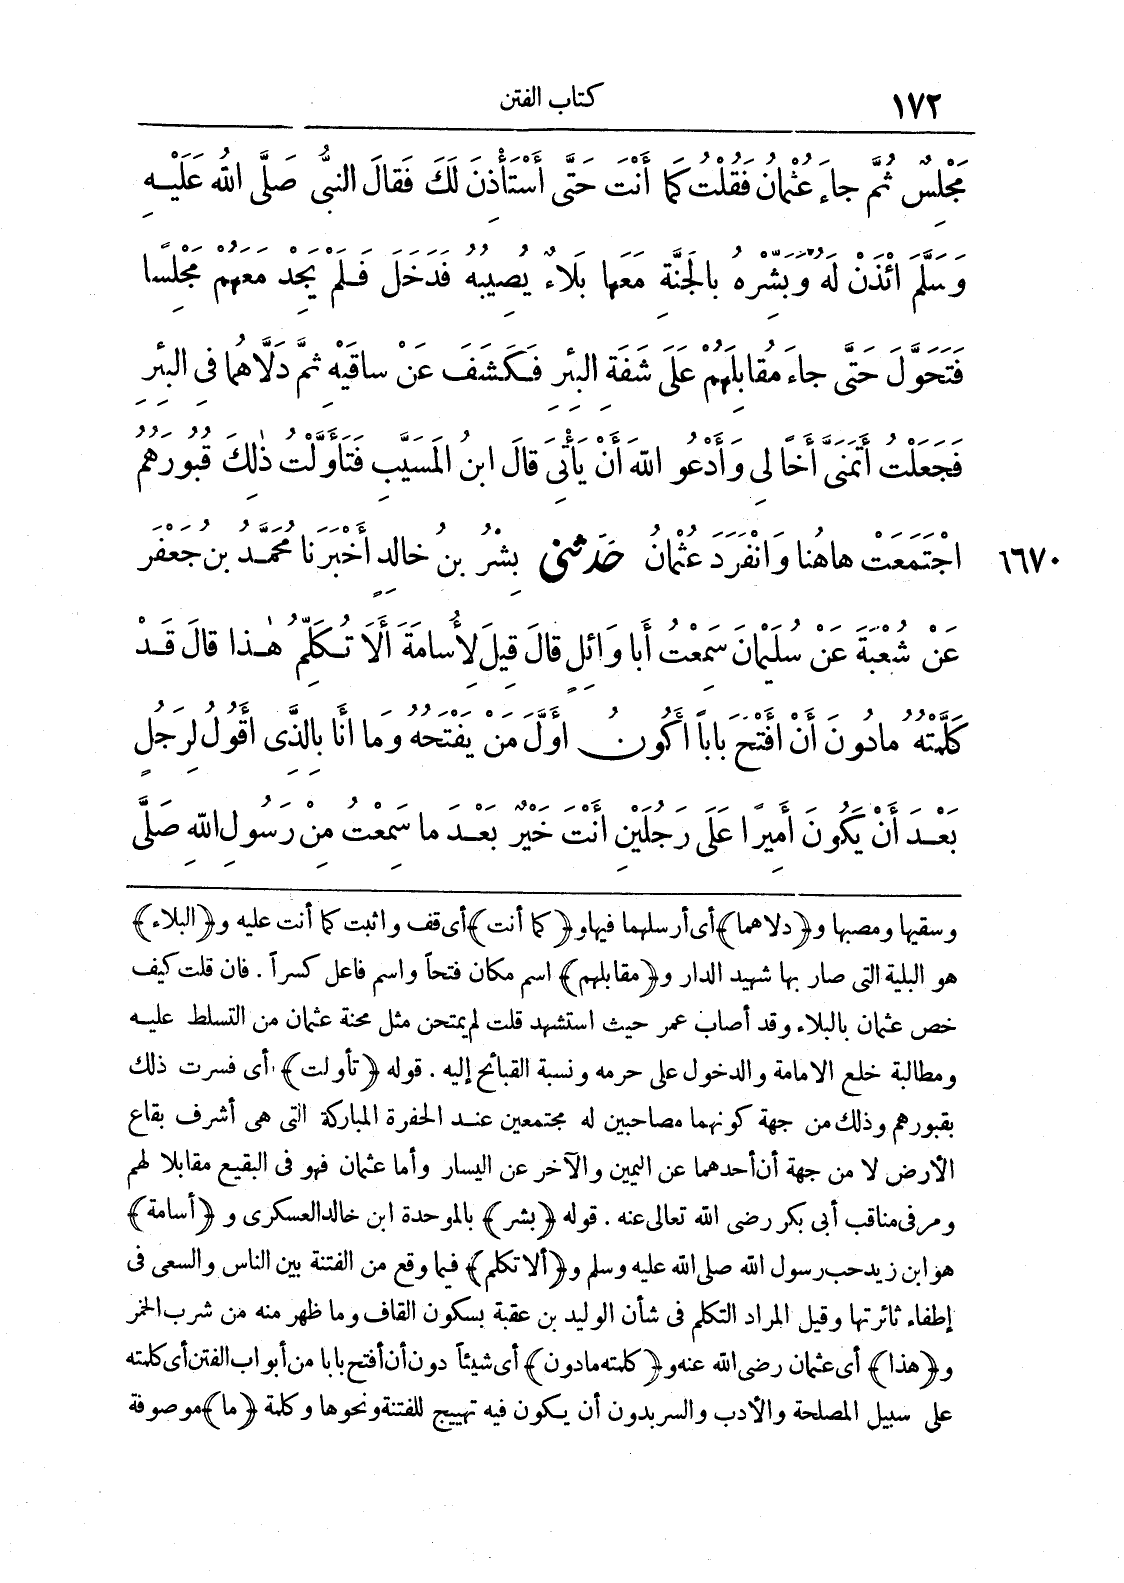 ١٧٢
كتاب الفتن
مَجْلِسٌ ثُمَّ جاءَ عُثْمانُ فَقُلْتُ كَما أَنْتَ حَتَّى أَسْتَأْذِنَ لَكَ فَقالَ النبىُّ صَلَّى اللهُ عَلَيْهِ
وَسَلَّمَ ائْذَنْ لَهُ وَبَشِّرْهُ بالجَنَّةِ مَعَها بَلاءٌ يُصِيبُهُ فَدَخَلَ فَلَمْ يَجِدْ مَعَهُمْ مَجْلِسًا
فَتَحَوَّلَ حَتَّى جاءَ مُقابِلَهُمْ عَلَى شَفَةِ البِئْرِ فَكَشَفَ عَنْ ساقَيْهِ ثُمَّ دَلَّاهُما فِى البِئْرِ
فَجَعَلْتُ أَتَمَنَّى أَخًا لِى وَأَدْعُو اللهَ أَنْ يَأْتِىَ قالَ ابنُ المُسَيَّبِ فَتَأَوَّلْتُ ذٰلِكَ قُبُورَهُمُ
اجْتَمَعَتْ هاهُنا وَانْفَرَدَ عُثْمانُ حَدَّثَنِى بِشْرُ بنُ خالِدٍ أَخْبَرَنا مُحَمَّدُ بنُ جَعْفَرٍ
١٦٧٠
عَنْ شُعْبَةَ عَنْ سُلَيْمانَ سَمِعْتُ أَبا وَائِلٍ قالَ قِيلَ لِأُسامَةَ أَلَا تُكَلِّمُ هٰذا قالَ قَدْ
كَلَّمْتُهُ مادُونَ أَنْ أَفْتَحَ باباً أَكُونُ أَوَّلَ مَنْ يَفْتَحُهُ وَما أَنا بِالَّذِى أَقُولُ لِرَجُلٍ
بَعْدَ أَنْ يَكُونَ أَمِيرًا عَلَى رَجُلَيْنِ أَنْتَ خَيْرٌ بَعْدَ ما سَمِعْتُ مِنْ رَسُولِ اللهِ صَلَّى
وسقيها ومصبها و﴿دلاهما﴾أى أرسلهما فيهاو﴿كما أنت﴾أى قف واثبت كما أنت عليه و﴿البلاء﴾
هو البلية التى صار بها شهيد الدار و﴿مقابلهم﴾ اسم مكان فتحاً واسم فاعل كسراً . فان قلت كيف
خص عثمان بالبلاء وقد أصاب عمر حيث استشهد قلت لم يمتحن مثل محنة عثمان من التسلط عليه
ومطالبة خلع الامامة والدخول على حرمه ونسبة القبائح إليه . قوله ﴿تأولت﴾ أى فسرت ذلك
بقبورهم وذلك من جهة كونهما مصاحبين له مجتمعين عند الحفرة المباركة التى هى أشرف بقاع
الأرض لا من جهة أن أحدهما عن اليمين والآخر عن اليسار وأما عثمان فهو فى البقيع مقابلا لهم
ومر فى مناقب أبى بكر رضى الله تعالى عنه . قوله ﴿بشر﴾ بالموحدة ابن خالد العسكرى و ﴿أسامة﴾
هو ابن زيد حب رسول الله صلى الله عليه وسلم و﴿ألا تكلم﴾ فيما وقع من الفتنة بين الناس والسعى فى
إطفاء ثائرتها وقيل المراد التكلم فى شأن الوليد بن عقبة بسكون القاف وما ظهر منه من شرب الخمر
و﴿هذا﴾ أى عثمان رضى الله عنه و﴿كلمته مادون﴾ أى شيئاً دون أن أفتح بابا من أبواب الفتن أى كلمته
على سبيل المصلحة والأدب والسر بدون أن يكون فيه تهييج للفتنة ونحوها وكلمة ﴿ما﴾ موصوفة